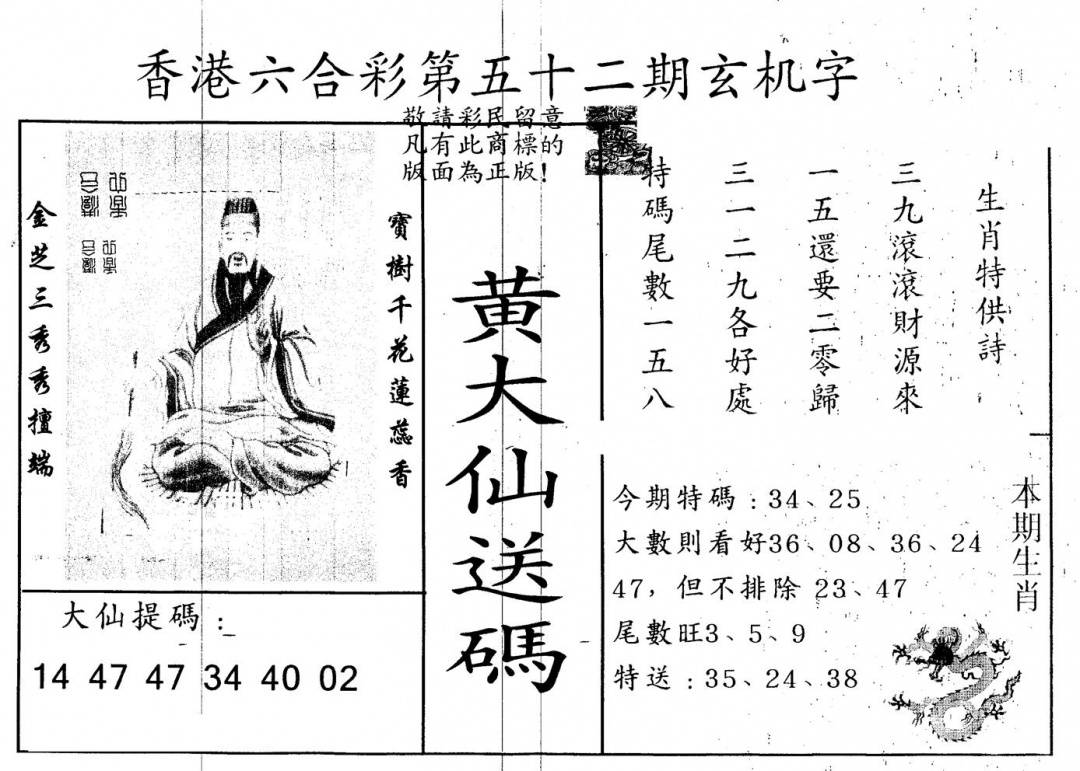 香港六合彩第五十二期玄机字
敬請彩民留意
凡有此商標的
版面為正版!
生肖特供詩
三九滾滾財源來
一五還要二零歸
三一二九各好處
特碼尾數一五八
黄大仙送碼
寶樹千花蓮蕊香
金芝三秀秀擅端
大仙提碼:
14 47 47 34 40 02
本期生肖
今期特碼:34、25
大數則看好36、08、36、24
47,但不排除 23、47
尾數旺3、5、9
特送:35、24、38